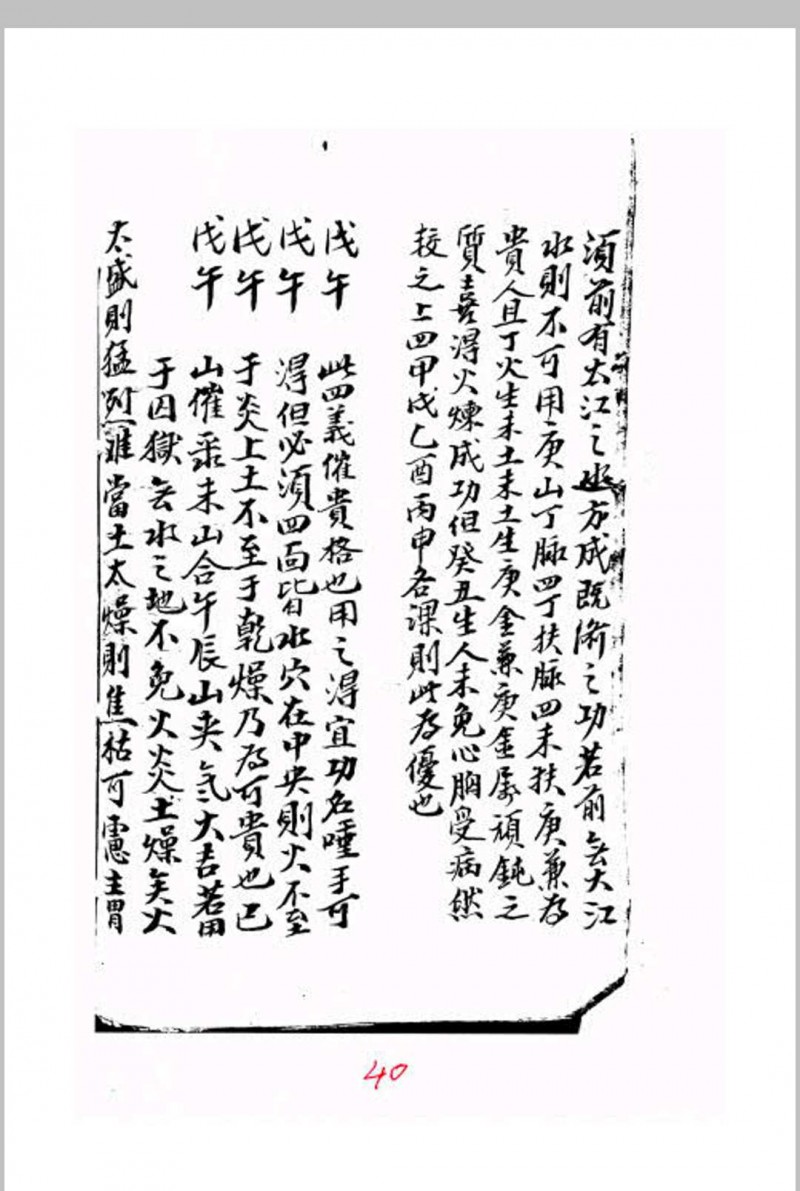 須前有大江之水方成既濟之功若前無大江
水則不可用庚山丁脉四丁扶脉四未扶庚兼為
貴人且丁火生未土未土生庚金兼庚金屬頑鈍之
質喜得火煉成功但癸丑生人未免心胸受病然
較之上四甲戌乙酉丙申各課則此為優也
戊午 此四義催貴格也用之得宜功名唾手可
戊午 得但必須四面皆水穴在中央則火不至
戊午 于炎上土不至于乾燥乃為可貴也巳
戊午 山催豖未山合午辰山夹氣大吉若用
于囚獄無水之地不免火炎土燥矣火
太盛則猛烈难當土太燥則焦枯可慮主胃
40